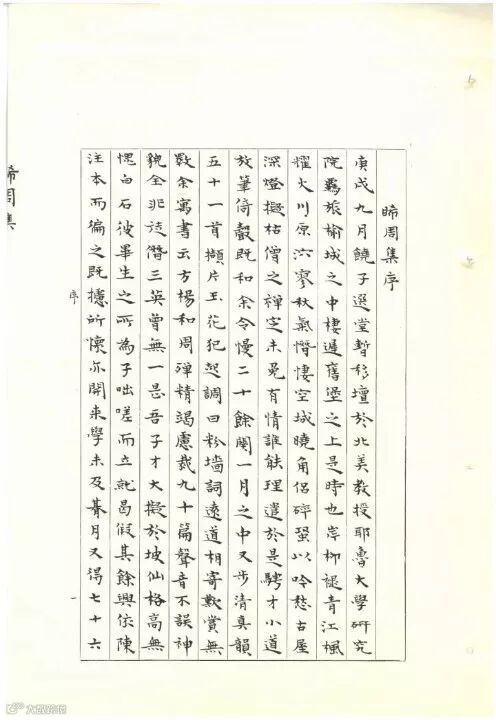 晞周集序
庚戌九月饒子選堂暫移壇於北美教授耶魯大學研究
院羇旅榆城之中棲遲舊堡之上是時也岸柳褪青江楓
耀火川原泬寥秋氣憯悽空城曉角侶碎蛩以吟愁古屋
深燈擬枯僧之禪定未免有情誰能理遣於是騁才小道
放筆倚聲既和余令慢二十餘闋一月之中又步清真韻
五十一首擷片玉花犯起調曰粉墻詞遠道相寄歎賞無
斁余寓書云方楊和周殫精竭慮裁九十篇聲音不誤神
貌全非遠僭三英曾無一是吾子才大擬於坡仙格高無
愧白石彼畢生之所為子咄嗟而立就曷假其餘興依陳
注本而遍之既攄所懷亦開來學未及朞月又得七十六
晞周集
序
一
大家收藏